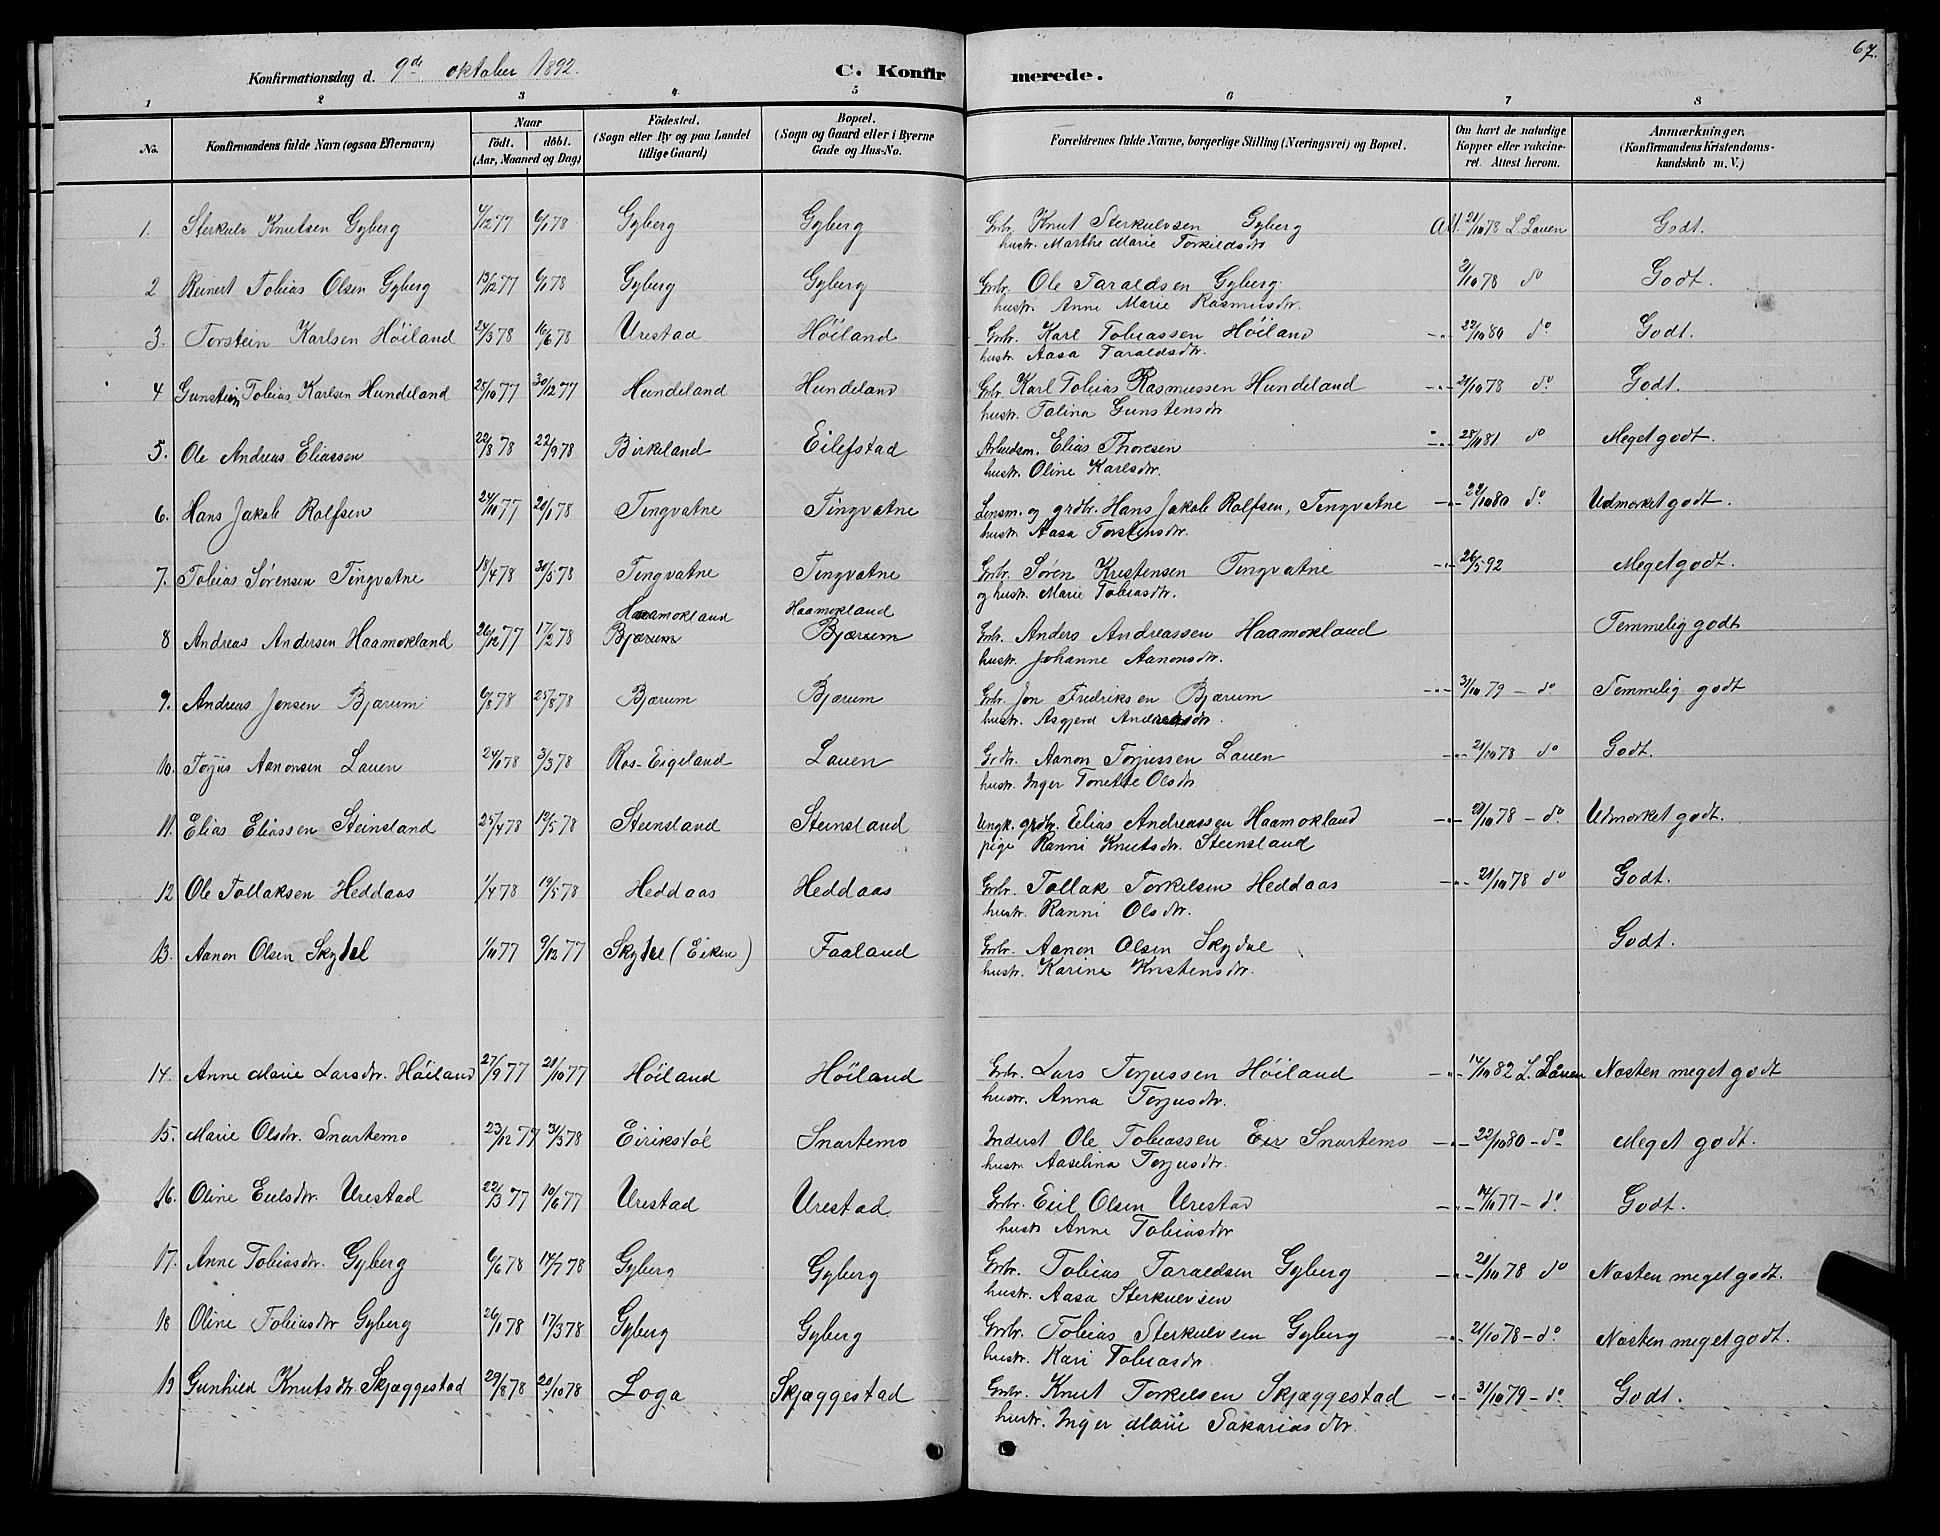 67.
Konfirmationsdag d. 9de oktober 1892.
C. Konfirmerede.
1 2 3 4 5 6 7 8
No. Konfirmandens fulde Navn (ogsaa Efternavn) Naar födt. döbt. (Aar, Maaned og Dag) Födested. (Sogn eller By og paa Landet tillige Gaard) Bopæl. (Sogn og Gaard eller i Byerne Gade og Hus-No. Forældrenes fulde Navne, borgerlige Stilling (Næringsvei) og Bopæl. Om havt de naturlige Kopper eller vakcineret. Attest herom. Anmærkninger, (Konfirmandens Kristendomskundskab m. V.)
1. Sterkulv Knutsen Gyberg 4/12 77 6/1 78 Gyberg Gyberg Grbr. Knut Sterkulvsen Gyberg Att. 21/10 78 L. Lauen Godt.
hustr. Marthe Marie Torkildsdtr
2 Reinert Tobias Olsen Gyberg 13/12 77 6/1 78 Gyberg Gyberg Grbr. Ole Taraldsen Gyberg. 21/10 78 do Godt.
hustr. Anne Marie Rasmusdtr.
3. Torstein Karlsen Höiland 24/3 78 16/6 78 Urestad Höiland Grbr. Karl Tobiassen Höiland -"- 22/10 80 do Godt.
hustr. Aasa Taraldsdtr.
4 Gunstein Tobias Karlsen Hundeland 25/10 77 30/12 77 Hundeland Hundeland Grbr. Karl Tobias Rasmussen Hundeland -"- 21/10 78 do. Godt.
hustr. Talina Gunstensdtr
5. Ole Andreas Eliassen 22/8 78 22/9 78 Birkeland Eilefstad Arbeidsm. Elias Thoresen -"- 28/10 81 do Meget godt.
hustr. Oline Karlsdtr.
6. Hans Jakob Rolfsen 24/11 77 20/1 78 Tingvatne Tingvatne Lensm. og grdbr. Hans Jakob Rolfsen, Tingvatne -"- 22/10 80 do Udmerket godt.
hustr. Aasa Torstensdtr.
7. Tobias Sørensen Tingvatne 18/4 78 30/5 78 Tingvatne Tingvatne Grbr. Sören Kristensen Tingvatne -"- 26/5 92 Meget godt.
og hustr. Marie Tobiasdtr.
Haamokland Haamokland
8 Andreas Andersen Haamokland 26/12 77 17/2 78 Bjærum Bjærum Grbr. Anders Andreassen Haamokland Temmelig godt
hustr. Johanne Aanonsdtr.
9. Andreas Jonsen Bjærum 6/8 78 25/8 78 Bjærum Bjærum Grbr. Jon Fredriksen Bjærum -"- 31/10 79 - do Temmelig godt
hustr. Asgjerd Andreasdtr.
10. Torjus Aanonsen Lauen 24/1 78 3/3 78 Ros-Eigeland Lauen Grdr. Aanon Torjussen Lauen -"- 21/10 78 do Godt.
hustr. Inger Tonette Olsdtr
11. Elias Eliassen Steinsland 25/4 78 19/5 78 Steinsland Steinsland Ungk. grdbr. Elias Andreassen Haamokland -"- 21/10 78 - do. Udmerket godt.
pige Ranni Knutsdtr. Steinsland
12 Ole Tollaksen Heddaas 1/4 78 19/5 78 Heddaas Heddaas Grbr. Tollak Torkelsen Heddaas -"- 21/10 78 do Godt.
hustr. Ranni Olsdtr.
13. Aanon Olsen Skydel 1/11 77 9/12 77 Skydel (Eiken) Faaland Grbr. Aanon Olsen Skydal Godt.
hustr. Karine Kristensdtr.
14. Anne Marie Larsdtr. Höiland 27/9 77 21/10 77 Höiland Höiland Grbr. Lars Torjussen Höiland -"- 14/10 82 L. Lauen Næsten meget godt
hustr. Anna Torjusdtr.
15. Marie Olsdtr. Snartemo 23/12 77 3/3 78 Eirikstöl Snartemo Inderst Ole Tobiassen Snartemo -"- 22/10 80 - do- Meget godt.
hustr. Aaselina Torjusdtr.
16. Oline Eulsdtr. Urestad 22/3 77 10/6 77 Urestad Urestad Grbr. Eiil Olsen Urestad -"- 14/10 77 - do. Godt.
hustr Anne Tobiasdtr
17. Anne Tobiasdtr. Gyberg 6/6 78 14/7 78 Gyberg Gyberg Grbr. Tobias Taraldsen Gyberg -"- 21/10 78 do Næsten meget godt.
hustr. Aasa Sterkulvsen
18 Oline Tobiasdtr Gyberg 26/1 78 17/3 78 Gyberg Gyberg Grbr. Tobias Sterkulvsen Gyberg -"- 21/10 78 - do Næsten meget godt.
hustr. Kari Tobiasdtr.
19 Gunhild Knutsdtr. Skjæggestad 29/8 78 20/10 78 Loga Skjæggestad Grbr. Knut Torkelsen Skjæggestad -"- 31/10 79 - do. Godt.
hustr. Inger Marie Sakariasdtr.